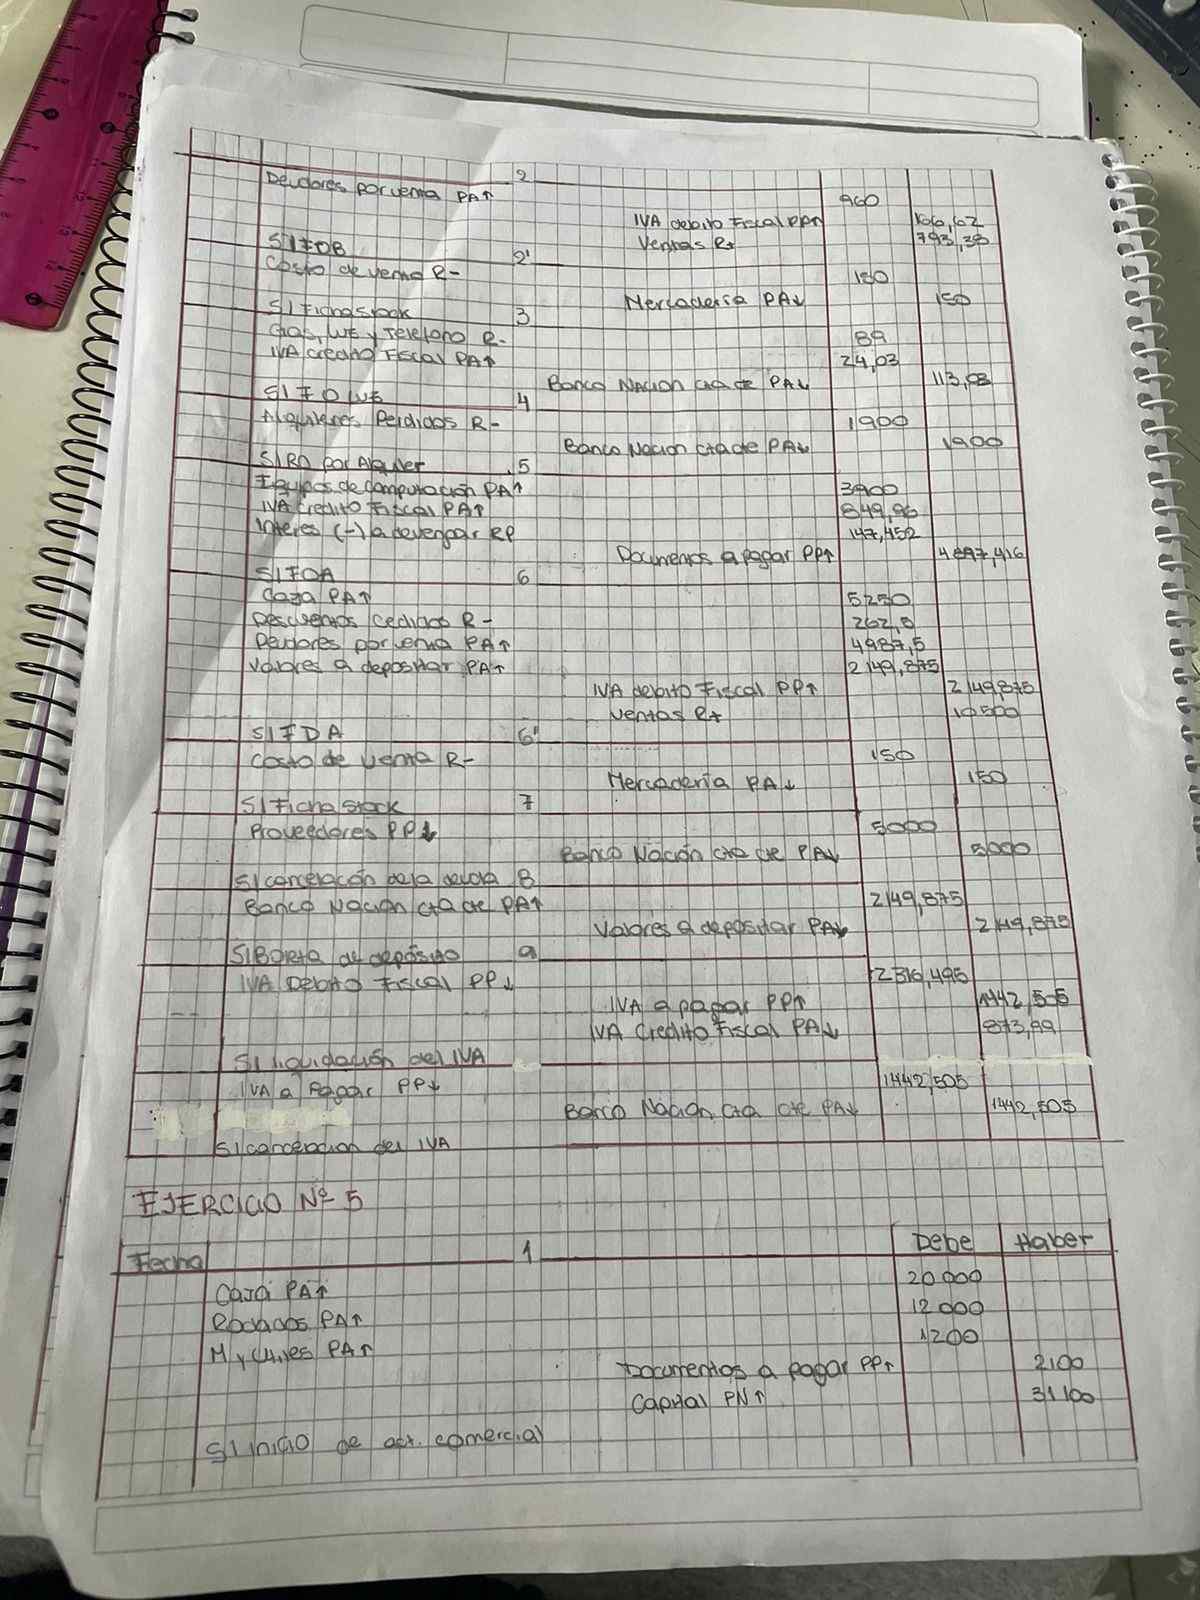 2
Deudores por venta PA↑ 960
IVA debito Fiscal PP↑ 166,62
Ventas R+ 793,38
S/FOB 2'
Costo de venta R- 150
Mercadería PA↓ 150
S/Ficha stock 3
Gas, luz y Telefono R- 89
IVA Credito Fiscal PA↑ 24,03
Banco Nacion cta cte PA↓ 113,03
4
Alquileres Perdidos R- 1900
Banco Nacion cta cte PA↓ 1900
S/RO por Alquiler 5
Equipos de computación PA↑ 3900
IVA Credito Fiscal PA↑ 849,96
Interes (-) a devengar RP 147,452
Documentos a pagar PP↑ 4897,416
S/FOA 6
Caja PA↑ 5250
Descuentos cedidos R- 262,5
Deudores por venta PA↑ 4987,5
Valores a depositar PA↑ 2149,875
IVA debito Fiscal PP↑ 2149,875
Ventas R+ 10500
S/FDA 6'
Costo de venta R- 150
Mercadería PA↓ 150
S/Ficha stock 7
Proveedores PP↓ 5000
Banco Nación cta cte PA↓ 5000
S/cancelación de la deuda 8
Banco Nación cta cte PA↑ 2149,875
Valores a depositar PA↓ 2149,875
S/Boleta de depósito 9
IVA Debito Fiscal PP↓ 2316,495
IVA a pagar PP↑ 1442,505
IVA Credito Fiscal PA↓ 873,99
S/Liquidación del IVA
IVA a Pagar PP↓ 1442,505
Banco Nación cta cte PA↓ 1442,505
S/cancelacion del IVA
EJERCICIO Nº 5
Fecha 1 Debe Haber
Caja PA↑ 20000
Rodados PA↑ 12000
M y Utiles PA↑ 1200
Documentos a pagar PP↑ 2100
Capital PN↑ 31100
S/inicio de act. comercial